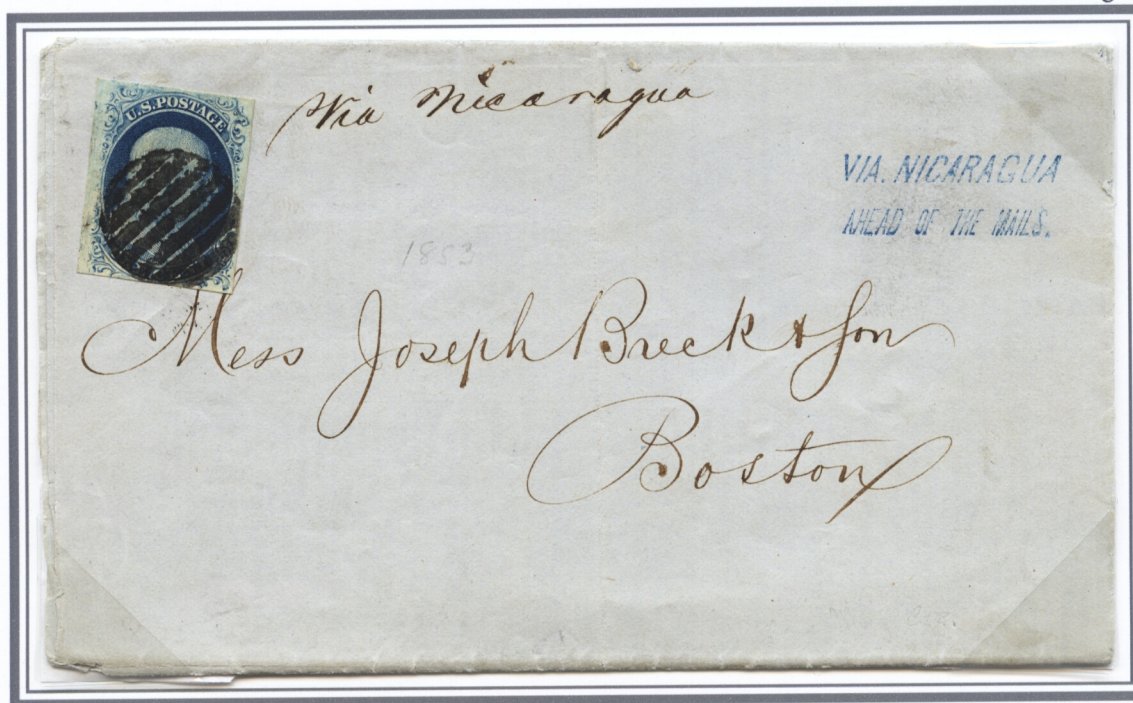 U.S.POSTAGE
Via Nicaragua
VIA. NICARAGUA
AHEAD OF THE MAILS.
1853
Mess Joseph Breck & Son
Boston